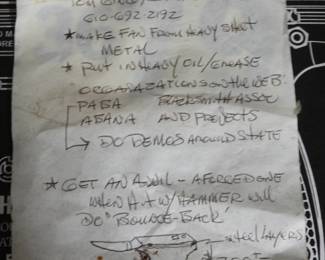 610-692-2192
* MAKE FAN FROM HEAVY SHEET
METAL
* PUT IN HEAVY OIL/GREASE
ORGANAZATIONS ON THE WEB:
PABA BLACKSMITH ASSOC
ABANA AND PROJECTS
DO DEMOS AROUND STATE
* GET AN ANVIL - A FORCED ONE
WHEN HIT W/ HAMMER WILL
DO "BOUNCE-BACK"
STEEL LAYERS